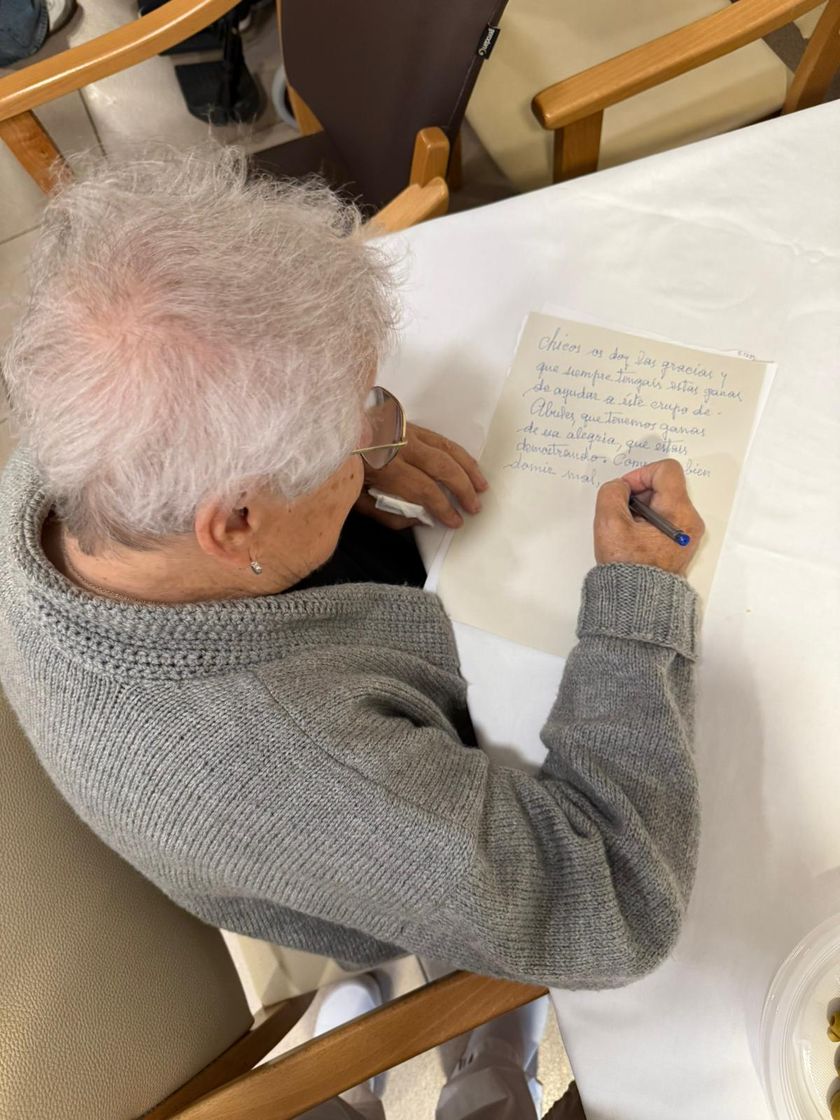 chicos os doy las gracias y
que siempre tengais estas ganas
de ayudar a éste grupo de -
Abueles que tenemos ganas
de una alegria, que estais
demostrando. Comer bien
domir mal,